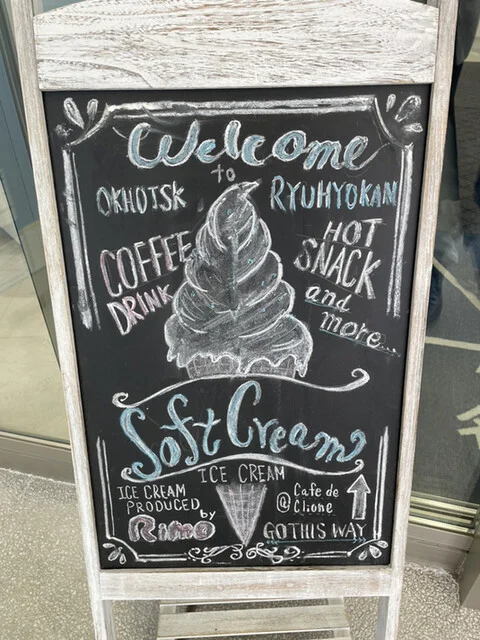 Welcome
to
OKHOTSK RYUHYOKAN
COFFEE
DRINK
HOT
SNACK
and
more...
Soft Cream
ICE CREAM
ICE CREAM
PRODUCED
by
Rimo
@ Cafe de
Clione
GO THIS WAY